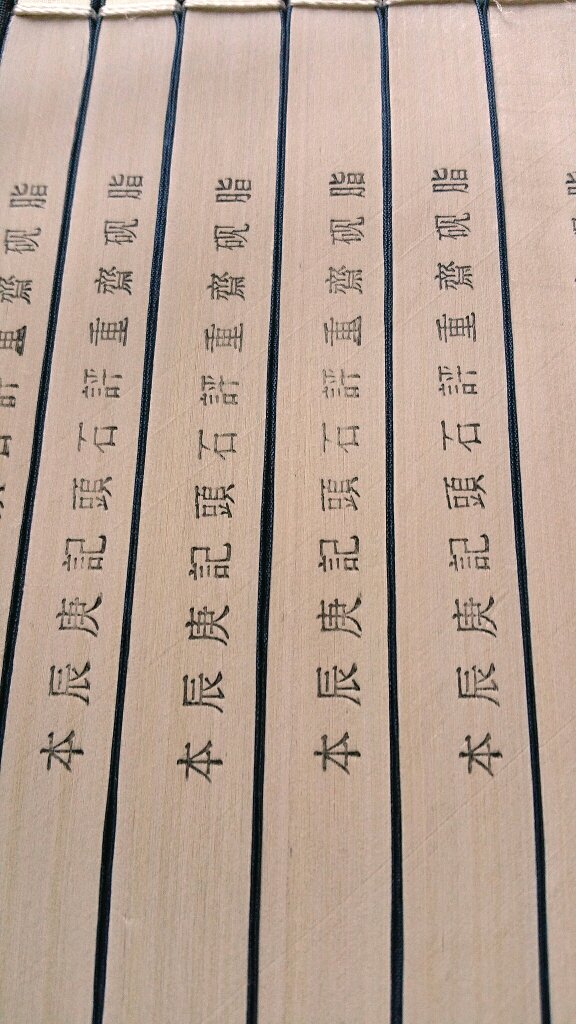 脂硯齋重
脂硯齋重評石頭記庚辰本
脂硯齋重評石頭記庚辰本
脂硯齋重評石頭記庚辰本
脂硯齋重評石頭記庚辰本